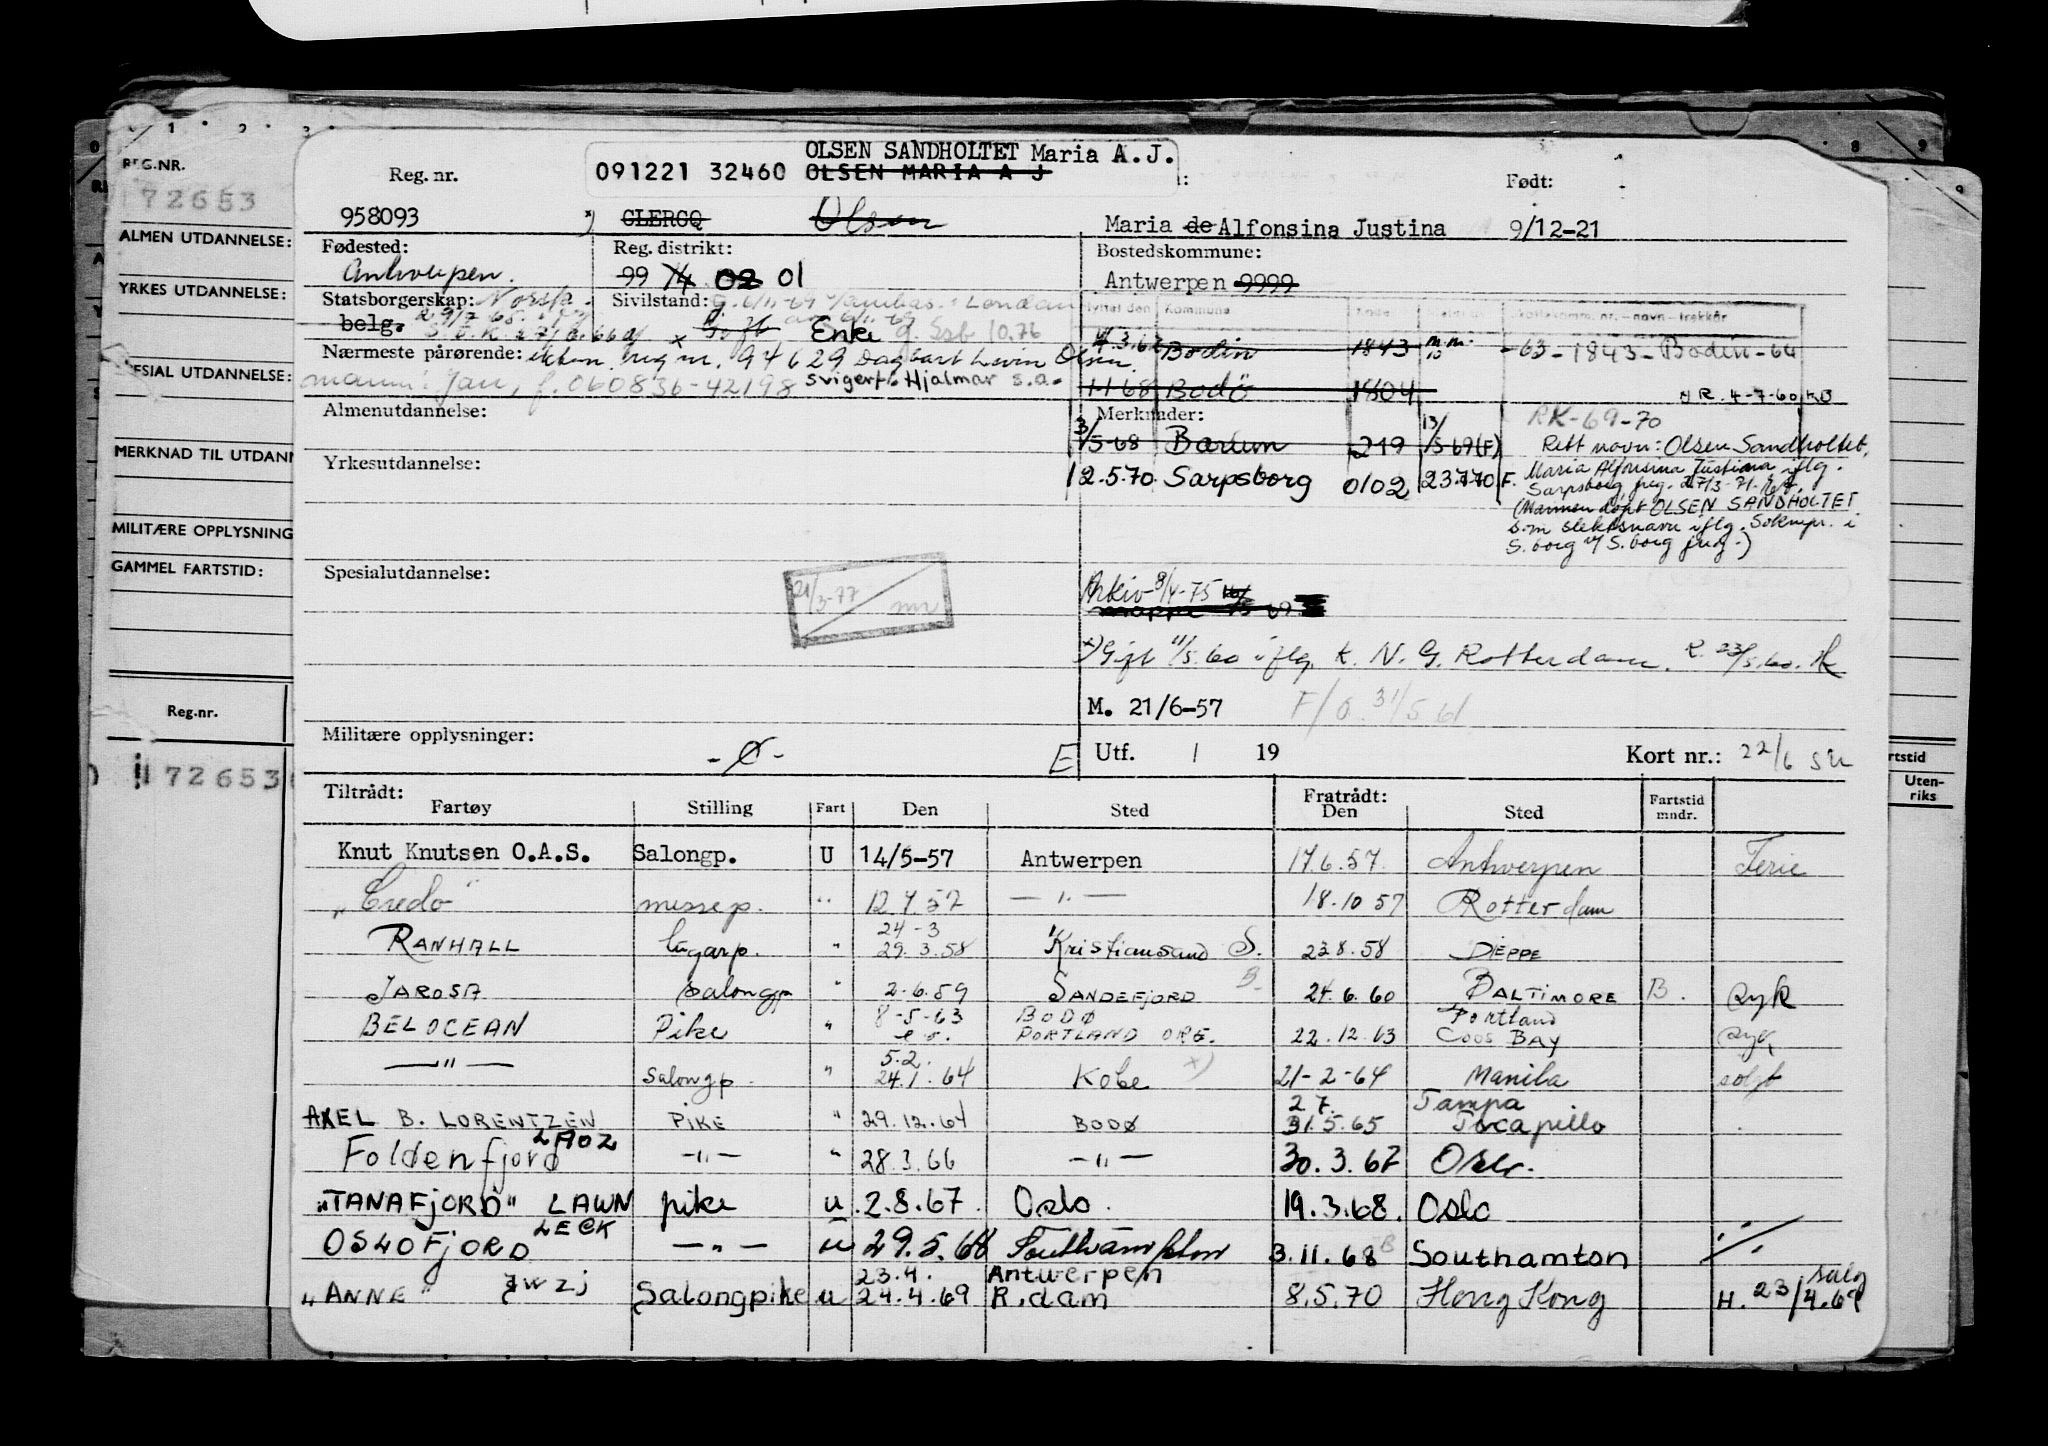 REG.NR.
172653
ALMEN UTDANNELSE:
YRKES UTDANNELSE:
SPESIAL UTDANNELSE:
MERKNAD TIL UTDANN
MILITÆRE OPPLYSNING
GAMMEL FARTSTID:
Reg.nr.
172653
OLSEN SANDHOLTET Maria A.J.
Reg. nr. 091221 32460 OLSEN MARIA A J Født:
958093 CLERCQ Olsen Maria de Alfonsina Justina 9/12-21
Fødested: Reg. distrikt: Bostedskommune:
Antwerpen. 99 02 01 Antwerpen 9999
Statsborgerskap: Norsk. Sivilstand:
belg. Enke
Nærmeste pårørende: 94629 Dagbart Olsen
mann: Jan, f. 060836-42198 svigerf: Hjalmar s.a.
Kommune
3.62 Bodin 1843 -63-1843-Bodin-64
1-1 68 Bodø 1804 NR. 4-7-60
Almenutdannelse: Merknader: RK-69-70
3/5-68 Bærum 219 13/5-69(F) Rett navn: Olsen Sandholtet,
Maria Alfonsina Justina iflg.
Yrkesutdannelse: 12.5.70 Sarpsborg 0102 23770 F. Sarpsborg freg. 27/3-71.
(Mannen døpt OLSEN SANDHOLTET
som slektsnavn iflg. Soknepr. i
S.borg v/ S.borg freg.)
Spesialutdannelse: 21/3-77
Arkiv 8/4-75
mappe
x) Gift 11/5.60 iflg. K. N. G. Rotterdam. R. 23/5.60.
M. 21/6-57 F/O 31/5 61
Militære opplysninger: -Ø- E Utf. 1 19 Kort nr.: 22/6
Tiltrådt: Fratrådt:
Fartøy Stilling Fart Den Sted Den Sted Fartstid mndr.
Knut Knutsen O.A.S. Salongp. U 14/5-57 Antwerpen 17.6.57. Antwerpen Ferie
"Credo" messep. " 12.7.57 — " — 18.10 57 Rotterdam
24-3
RANHALL lugarp. " 29.3.58 Kristiansand S. 23.8.58 DIEPPE
JAROSA Salongp " 2.6.59 SANDEFJORD 24.6.60 BALTIMORE B. syk
8-5-63 BODØ Portland
BELOCEAN Pike " PORTLAND ORE. 22.12.63 COOS BAY syk
5.2.
— " — Salongp. " 24.1.64 Kobe x) 21-2-64 Manila solgt
27. Tampa
AXEL B. LORENTZEN PIKE " 29.12.64 BODØ 31.5.65 Tocapillo
Foldenfjord LAOZ —"— " 28.3.66 —"— 30.3.67 Oslo.
"TANAFJORD" LAWN pike u. 2.8.67. Oslo. 19.3.68. Oslo
OSLOFJORD LECK — " — u 29.5.68 Southampton 3.11.68 Southamton
23.4. Antwerpen
"ANNE" JWZJ Salongpike u 24.4.69 R.dam 8.5.70 Hong Kong H. 23/4.69
rtstid
Uten-
riks